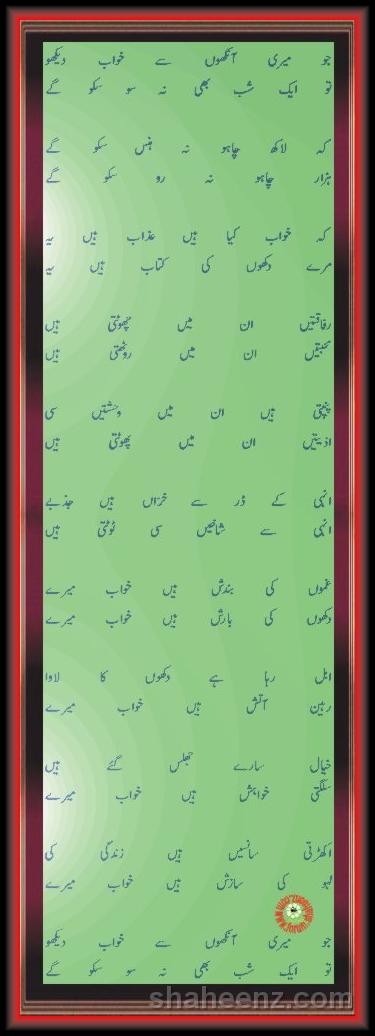 جو میری آنکھوں سے خواب دیکھو
تو ایک شب بھی نہ سو سکو گے
کہ لاکھ چاہو نہ ہنس سکو گے
ہزار چاہو نہ رو سکو گے
کہ خواب کیا ہیں عذاب ہیں یہ
مرے دکھوں کی کتاب ہیں یہ
رفاقتیں ان میں چھوٹتی ہیں
محبتیں ان میں روٹھتی ہیں
پنپتی ہیں ان میں وحشتیں سی
اذیتیں ان میں پھوٹتی ہیں
انہی کے ڈر سے خزاں ہیں جذبے
انہی سے شاخیں سی ٹوٹتی ہیں
غموں کی بندش ہیں خواب میرے
دکھوں کی بارش ہیں خواب میرے
ابل رہا ہے دکھوں کا لاوا
رہین آتش ہیں خواب میرے
خیال سارے جھلس گئے ہیں
سلگتی خواہش ہیں خواب میرے
اکھڑتی سانسیں ہیں زندگی کی
لہو کی سازش ہیں خواب میرے
جو میری آنکھوں سے خواب دیکھو
تو ایک شب بھی نہ سو سکو گے
shaheenz.com